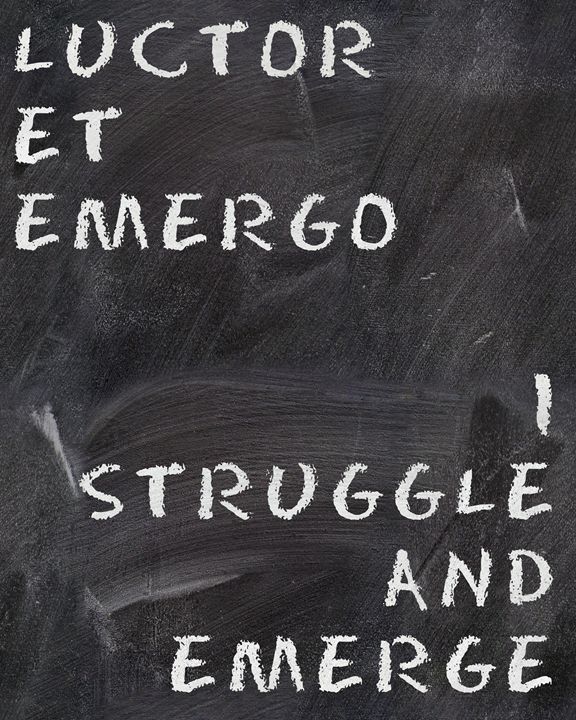 LUCTOR
ET
EMERGO
I
STRUGGLE
AND
EMERGE